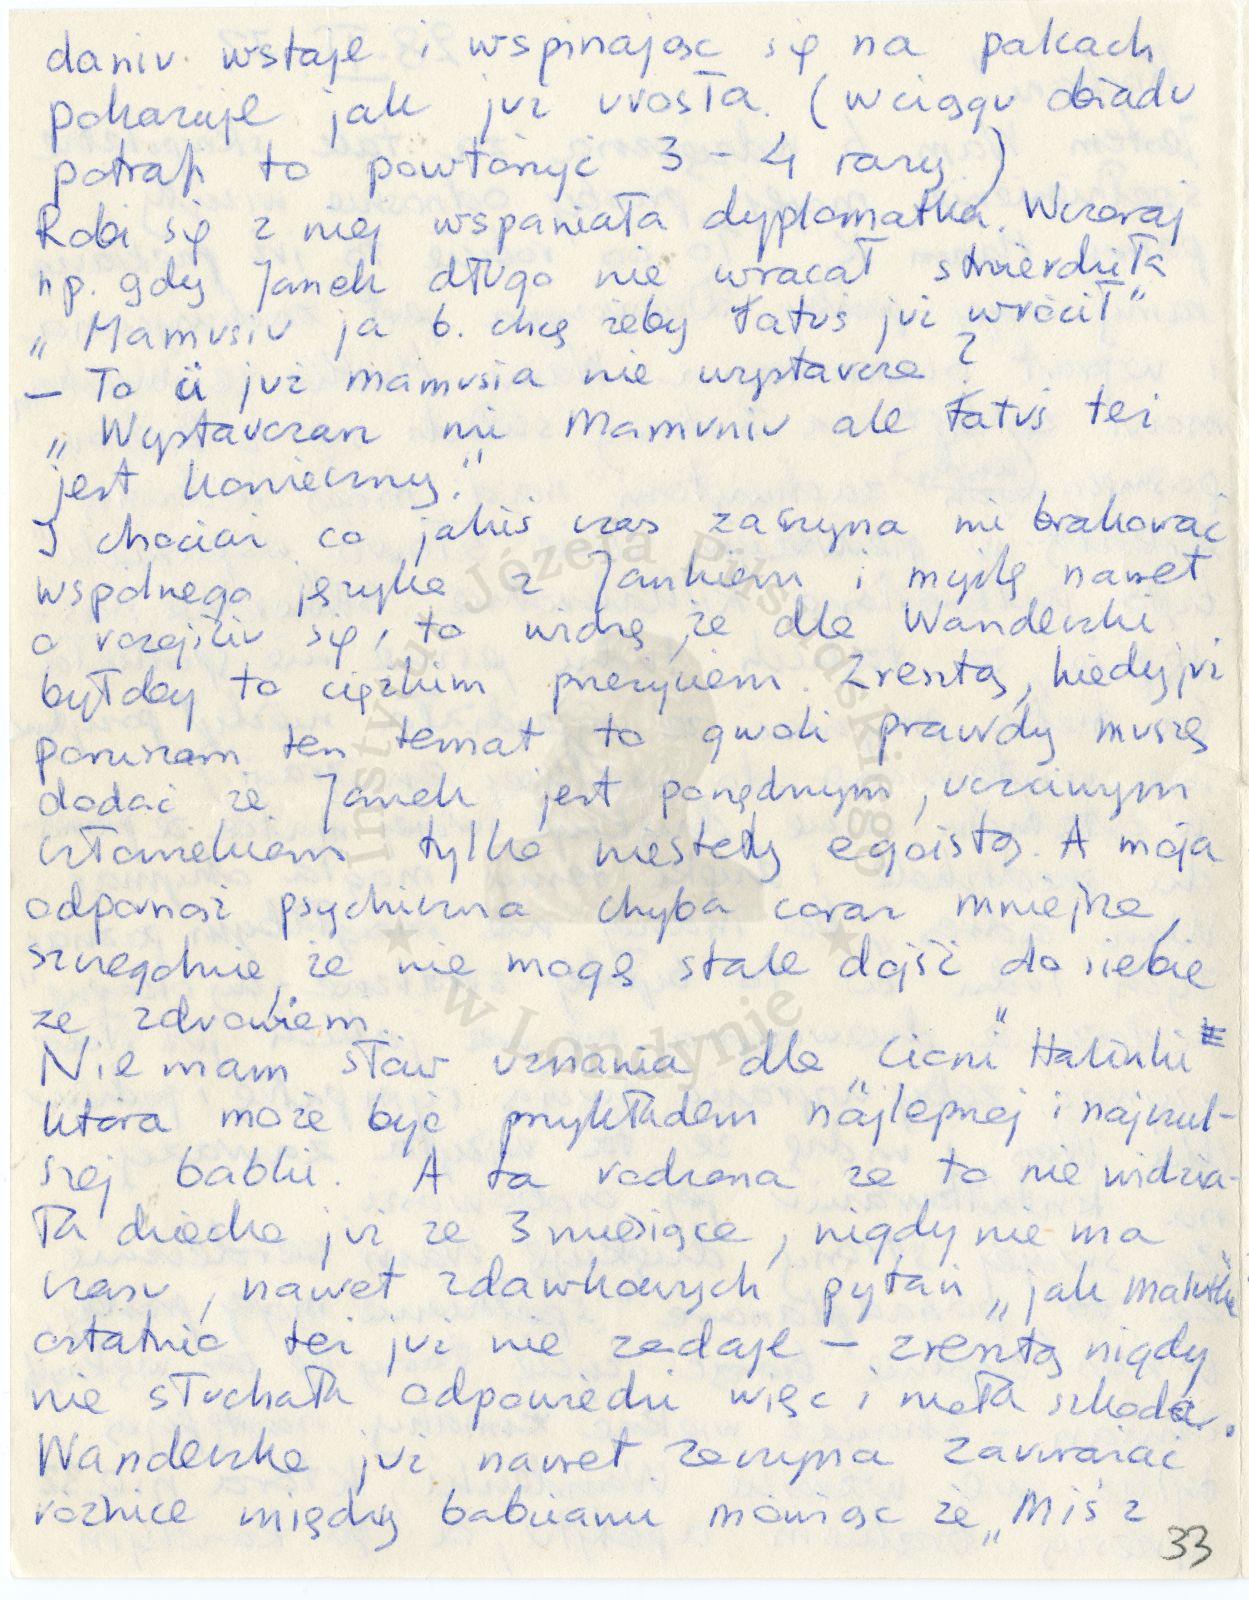 daniu wstaje i wspinając się na palcach
pokazuje jak już urosła. (w ciągu obiadu
potrafi to powtórzyć 3-4 razy)
Robi się z niej wspaniała dyplomatka. Wczoraj
np. gdy Janek długo nie wracał stwierdziła
„Mamusiu ja b. chcę żeby tatuś już wrócił"
- To ci już mamusia nie wystarcza?
„Wystarczasz mi Mamuniu ale tatuś też
jest konieczny."
I chociaż co jakiś czas zaczyna mi brakować
wspólnego języka z Jankiem i myślę nawet
o rozejściu się, to widzę, że dla Wandeczki
byłoby to ciężkim przeżyciem. Zresztą, kiedy już
poruszam ten temat to gwoli prawdy muszę
dodać że Janek jest porządnym, uczciwym
człowiekiem tylko niestety egoistą. A moja
odporność psychiczna chyba coraz mniejsza,
szczególnie, że nie mogę stale dojść do siebie
ze zdrowiem.
Nie mam słów uznania dla „Cioci" Halinki
która może być przykładem najlepszej i najczul-
szej babki. A ta rodzona za to nie widzia-
ła dziecka już ze 3 miesiące, nigdy nie ma
czasu, nawet zdawkowych pytań „jak malutka"
ostatnio też już nie zadaje - zresztą nigdy
nie słuchała odpowiedzi więc i mała szkoda.
Wandeczka już nawet zaczyna zauważać
różnice między babciami mówiąc że „Miś z
33
Instytut Józefa Piłsudskiego
w Londynie